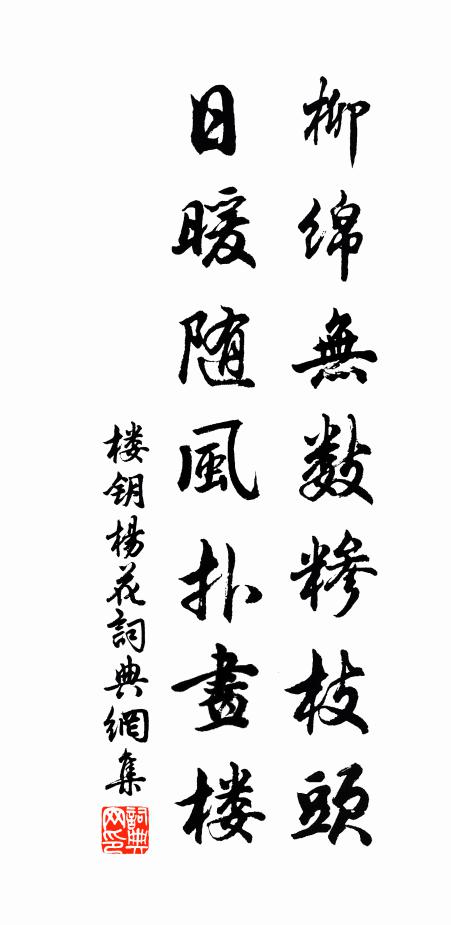 柳绵無数糁枝頭
日暖随風扑畫楼
楼钥杨花詞典網集
詞典网印